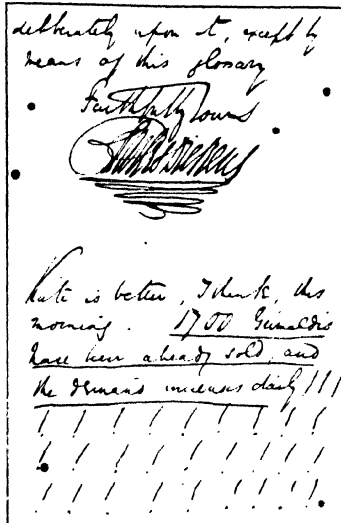 deliberately upon it, except by
means of this glossary
Faithfully Yours
Charles Dickens
Kate is better, I think, this
morning. 1700 Grimaldis
have been already sold, and
the demand increases daily!!!
! ! ! ! ! ! ! ! ! !
! ! ! ! ! ! ! ! ! !
! ! ! ! ! ! ! ! ! !